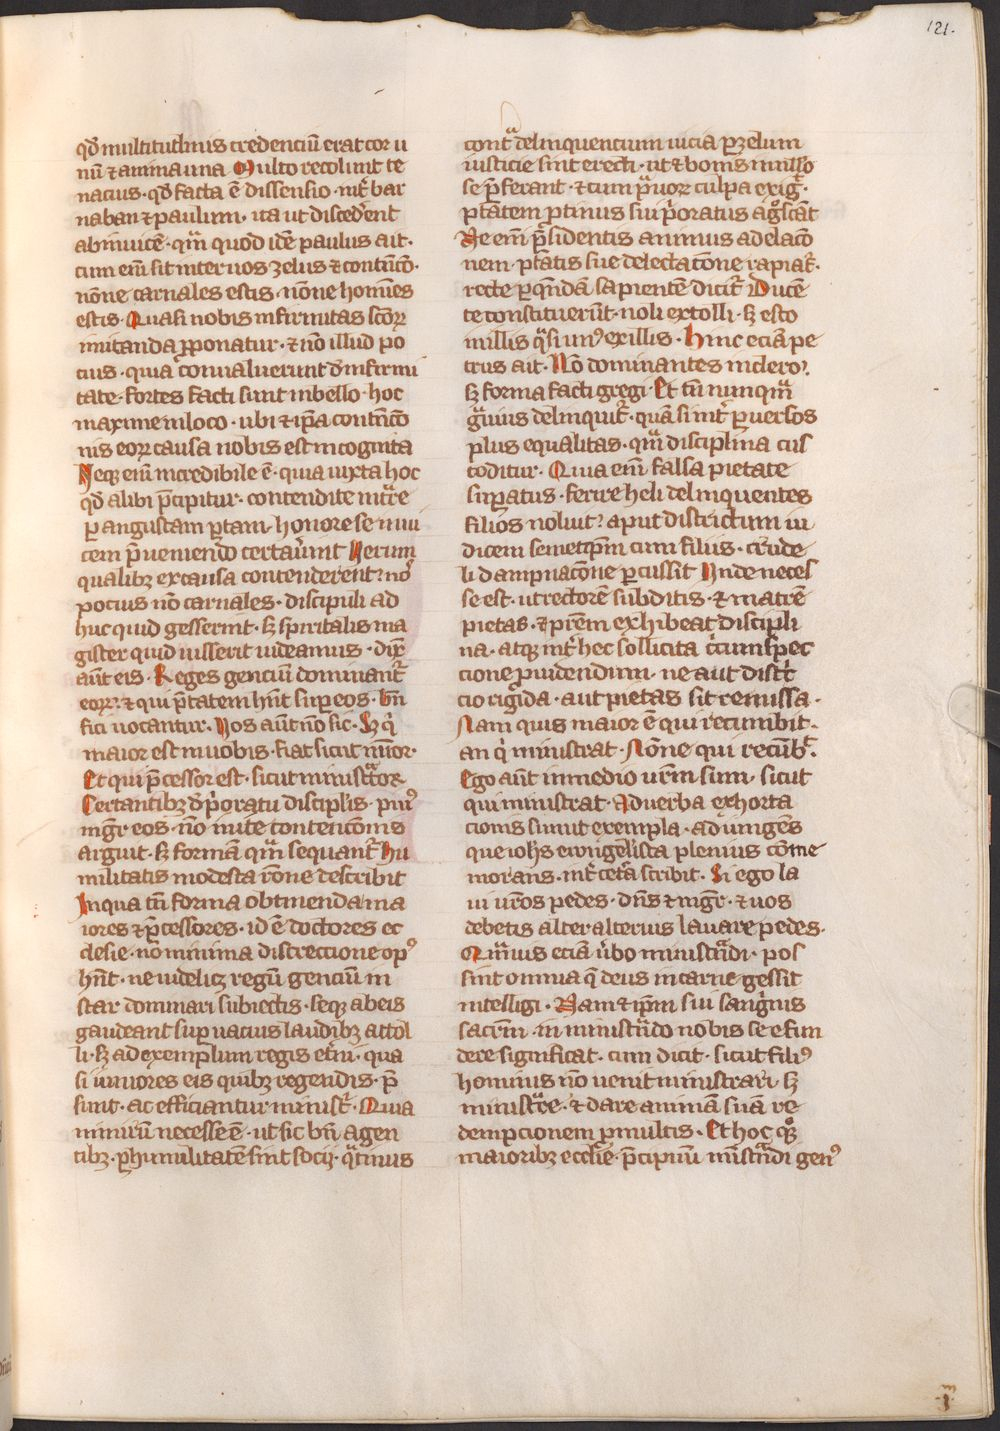 121.
qđ multitudinis credenciū erat cor u
nū ⁊ anima una Multo recolunt te
nacius · qđ facta ē dissensio · int̄ bar
naban ⁊ paulum · ita ut discedērent
abinuicē · qm̄ quod idē paulus ait ·
cum em̄ sit inter uos zelus ⁊ contēcō ·
nōne carnales estis · nōne homīes
estis · Quasi nobis infirmitas scōꝝ
imitanda ꝓponatur · ⁊ nō illud po
cius · quia conualuerunt đ infirmi
tate · fortes facti sunt in bello · hoc
maxime in loco · ubi ⁊ ip̄a contēcō
nis eoꝝ causa nobis est incognita
Neqꝫ em̄ incredibile ē · quia iuxta hoc
qđ alibi p̄cipitur · contendite intᵃre
ꝑ angustam ꝑtam · honore se inui
cem p̄ueniendo certaūint Verum
qualibꝫ ex causa contenderent? nō
pocius nō carnales · discipuli ad
huc quid gesserint · sꝫ spiritalis ma
gister quid iusserit uideamus · dix̄
aūt eis · Reges gencium dominant̄
eoꝝ · ⁊ qui p̄tatem hn̄t sup eos · bn̄
fici uocantur · Vos aūt nō sic · Sꝫ qⁱ
maior est in uobis · fiat sicut iunior ·
Et qui p̄cessor est · sicut ministᵃtor
Certantibꝫ đ pⁱoratu disciplis · piꝰ
mgr̄ eos · nō inuite contencionis
arguit · sꝫ formā qm̄ sequant̄ hu
militatis modesta rōne describit
In qua tn̄ forma obtinenda ma
iores ⁊ p̄cessores · id ē doctores ec
clesie · nō minima discreccione opꝰ
hn̄t · ne uidelicꝫ regū genciū in
star dominari subiectis · seqꝫ ab eis
gaudeant sup uacuis laudibꝫ attol
li · sꝫ ad exemplum regis et̄ni · qua
si iuniores eis quibꝫ regendis · p̄
sunt · ac efficiantur minist̄ · Quia
nimirū necesse ē · ut sic bn̄ agen
tibꝫ · ꝑ humilitatē sint socij · qᵃtinus
contᵃ delinquencium uicia ꝑ zelum
iusticie sint erecti · ut ⁊ bonis in nullo
se p̄ferant · ⁊ cum pᵃuoꝝ culpa exigᵗ ·
p̄tatem ꝓtinus sui pⁱoratus agᵒscāt
Ne em̄ p̄sidentis animus ad elacō
nem · p̄tatis sue delectacōne rapiat̄ ·
recte ꝑ qn̄dā sapientē dicit̄ Ducē
te constituerūt · noli extolli · sꝫ esto
in illis qᵃsi unꝰ ex illis · Hinc eciā pe
trus ait · Nō dominantes in cleroꝝ
sꝫ forma facti gregi · Et tn̄ nunqᵃm
gᵃuius delinquit̄ · quā si int̄ ꝑuersos
plus equalitas · qm̄ disciplina cus
toditur · Quia em̄ falsa pietate
supatus · ferire heli delinquentes
filios noluit? aput districtum iu
dicem semetip̄m cum filiis · crude
li dampnacōne ꝑcussit Vnde neces
se est · ut rectorē subditis · ⁊ matrē
pietas · ⁊ pr̄em exhibeat discipli
na · atqꝫ int̄ hec sollicita cⁱcumspec
cione ꝓuidendum · ne aut distⁱc
cio rigida · aut pietas sit remissa ·
Nam quis maior ē qui recumbit ·
an qⁱ ministrat · Nōne qui recūbᵗ ·
Ego aūt in medio ur̄m sum · sicut
qui ministrat · Ad uerba exhorta
cionis suniut exempla · ad iungēs
que ioh̄s ewngel̄ista plenius cōme
morans · int̄ cetᵃ scribit · Si ego la
ui ur̄os pedes · dn̄s ⁊ mgr̄ · ⁊ uos
debetis alter alterius lauare pedes ·
Qᵃmuis eciā ūbo ministᵃndi · pos
sint omnia q̄ deus in carne gessit
intelligi · Nam ⁊ ip̄m sui sangⁱnis
sacrm̄ · in ministᵃndo nobis se efun
dere significat · cum dicit · sicut filiꝰ
hominis nō uenit ministrari · sꝫ
ministᵃre · ⁊ dare animā suā re
dempcionem ꝓ multis · Et hoc qᵒqꝫ
maioribꝫ ecclīe · p̄cipuū ministᵃndi genꝰ